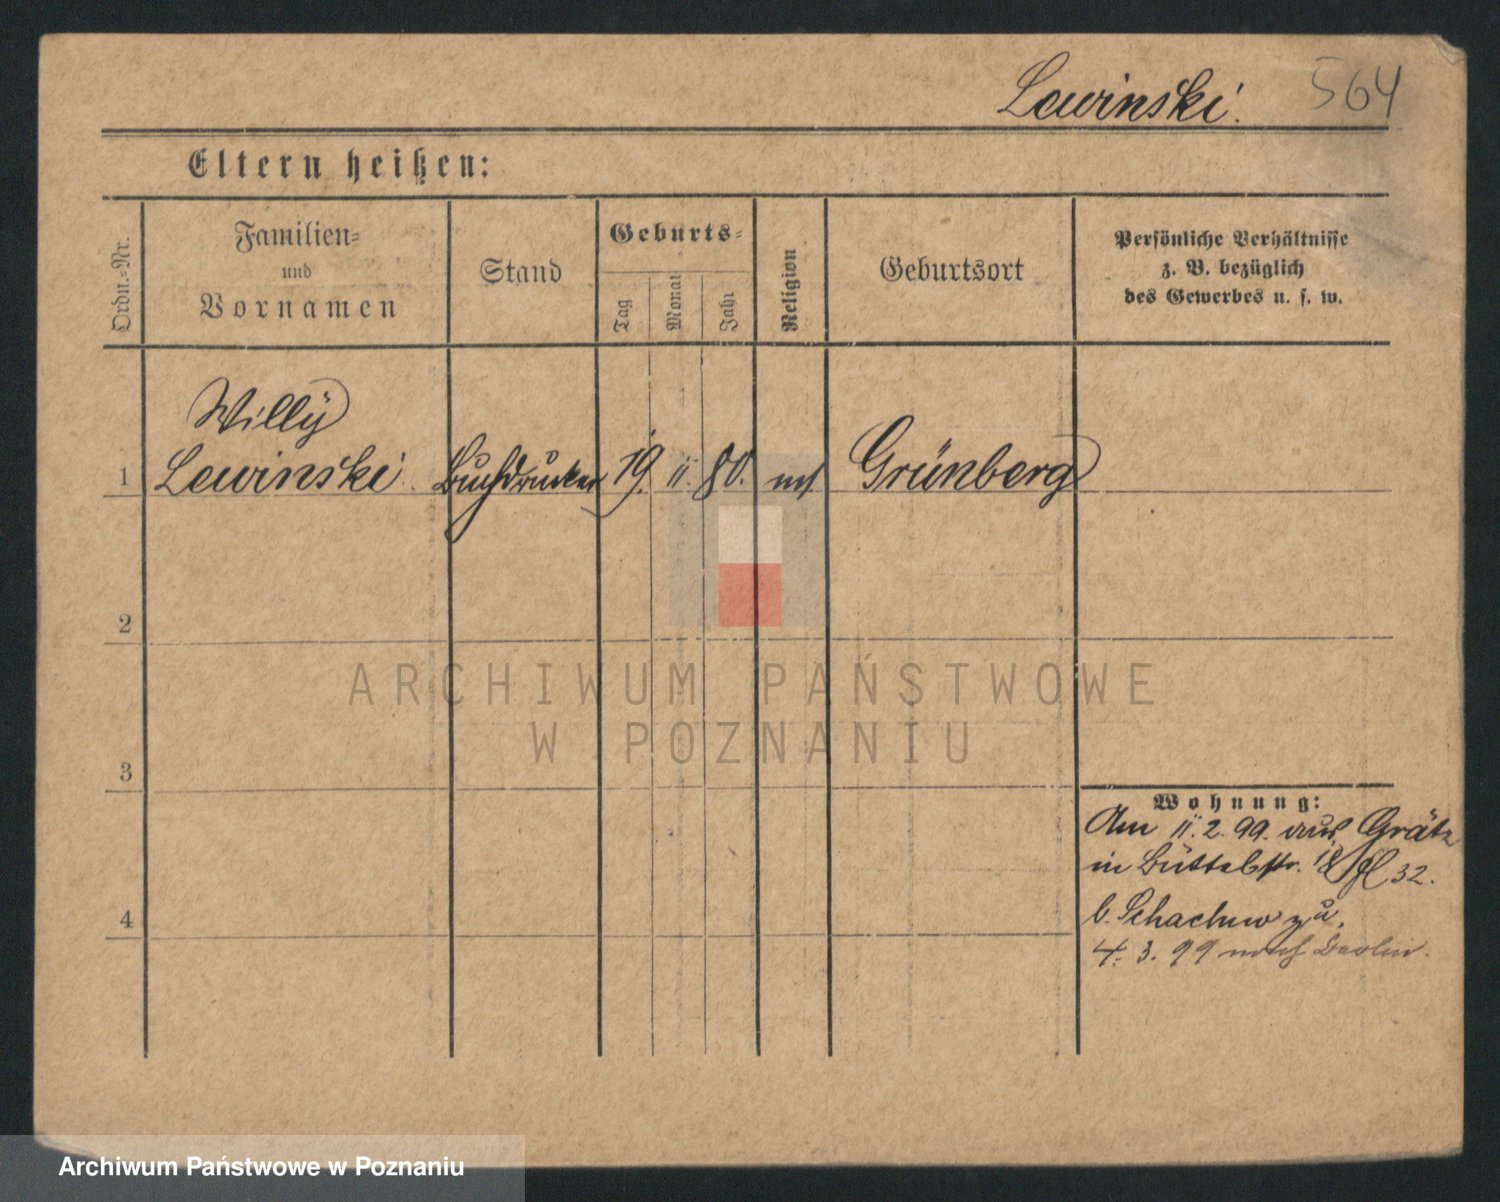 Lewinski. 564
Eltern heißen:
Ordn.-Nr.
Familien-
und
Vornamen
Stand
Geburts-
Tag
Monat
Jahr
Religion
Geburtsort
Persönliche Verhältnisse
z. B. bezüglich
des Gewerbes u. s. w.
Willy
1 Lewinski Buchdrucker 19. 11. 80. Grünberg
2
3
4
Wohnung:
Am 11. 2. 99. aus Grätz
in Büttelstr. 32.
b. zu.
4. 3. 99 nach Berlin.
ARCHIWUM PAŃSTWOWE
W POZNANIU
Archiwum Państwowe w Poznaniu